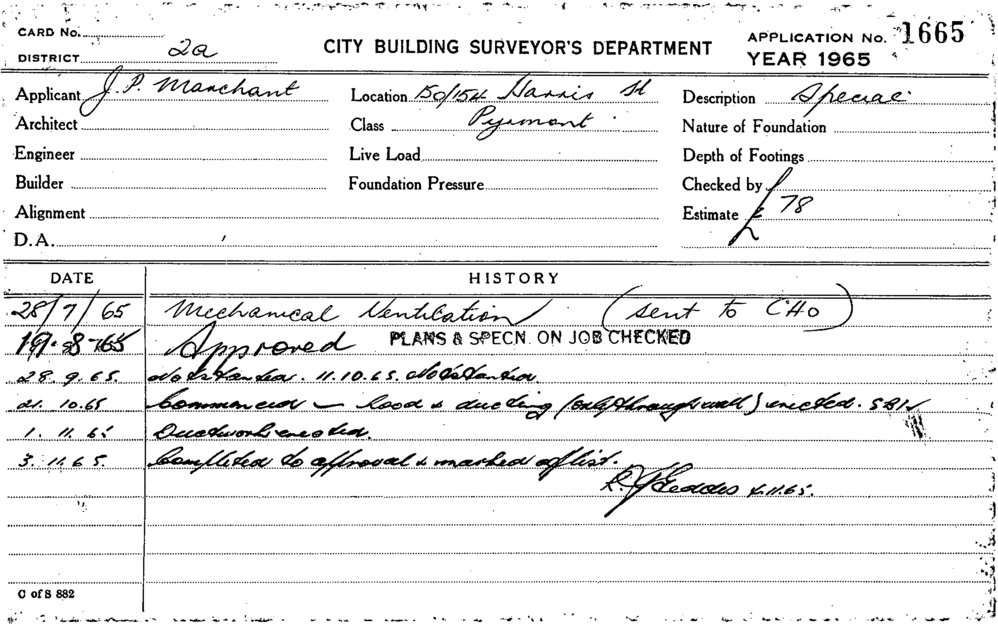 CARD No.
DISTRICT 2a
CITY BUILDING SURVEYOR'S DEPARTMENT
APPLICATION No. 1665
YEAR 1965
Applicant J. P. Marchant
Location 150/154 Harris St
Description Special
Architect
Class Pyrmont
Nature of Foundation
Engineer
Live Load
Depth of Footings
Builder
Foundation Pressure
Checked by
Alignment
Estimate £ 78
D.A.
DATE HISTORY
28/7/65 Mechanical Ventilation (sent to CHO)
19.8.65 Approved PLANS & SPECN. ON JOB CHECKED
28.9.65. Not started. 11.10.65. Not started.
21.10.65 Commenced - hood & ducting (only through wall) erected.
1.11.65 Ductwork erected.
3.11.65. Completed to approval & marked off list.
Geddes 4.11.65.
C of S 882